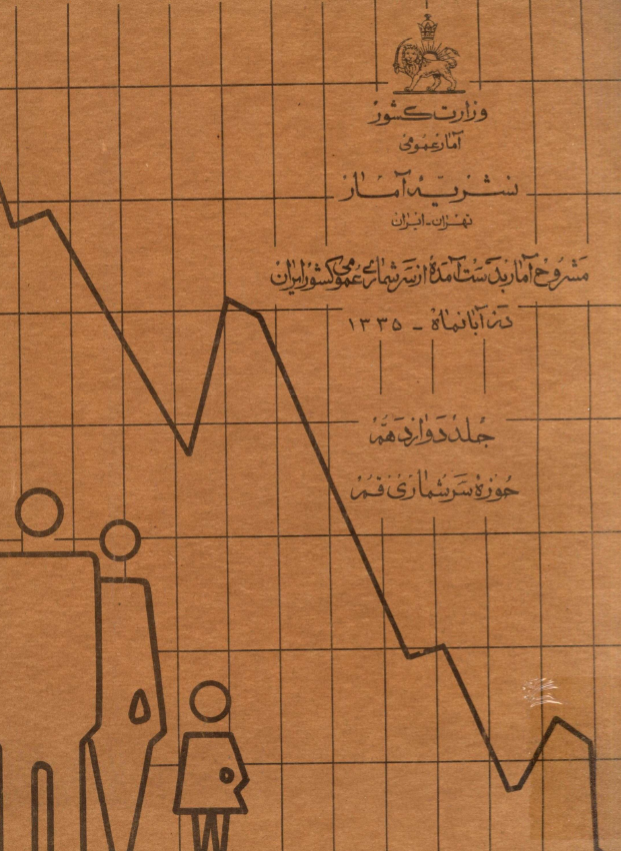 وزارت کشور
آمار عمومی
نشریه آمار
تهران - ایران
مشروح آمار بدست آمده از سرشماری عمومی کشور ایران
در آبانماه - ۱۳۳۵
جلد دوازدهم
حوزه سرشماری قم